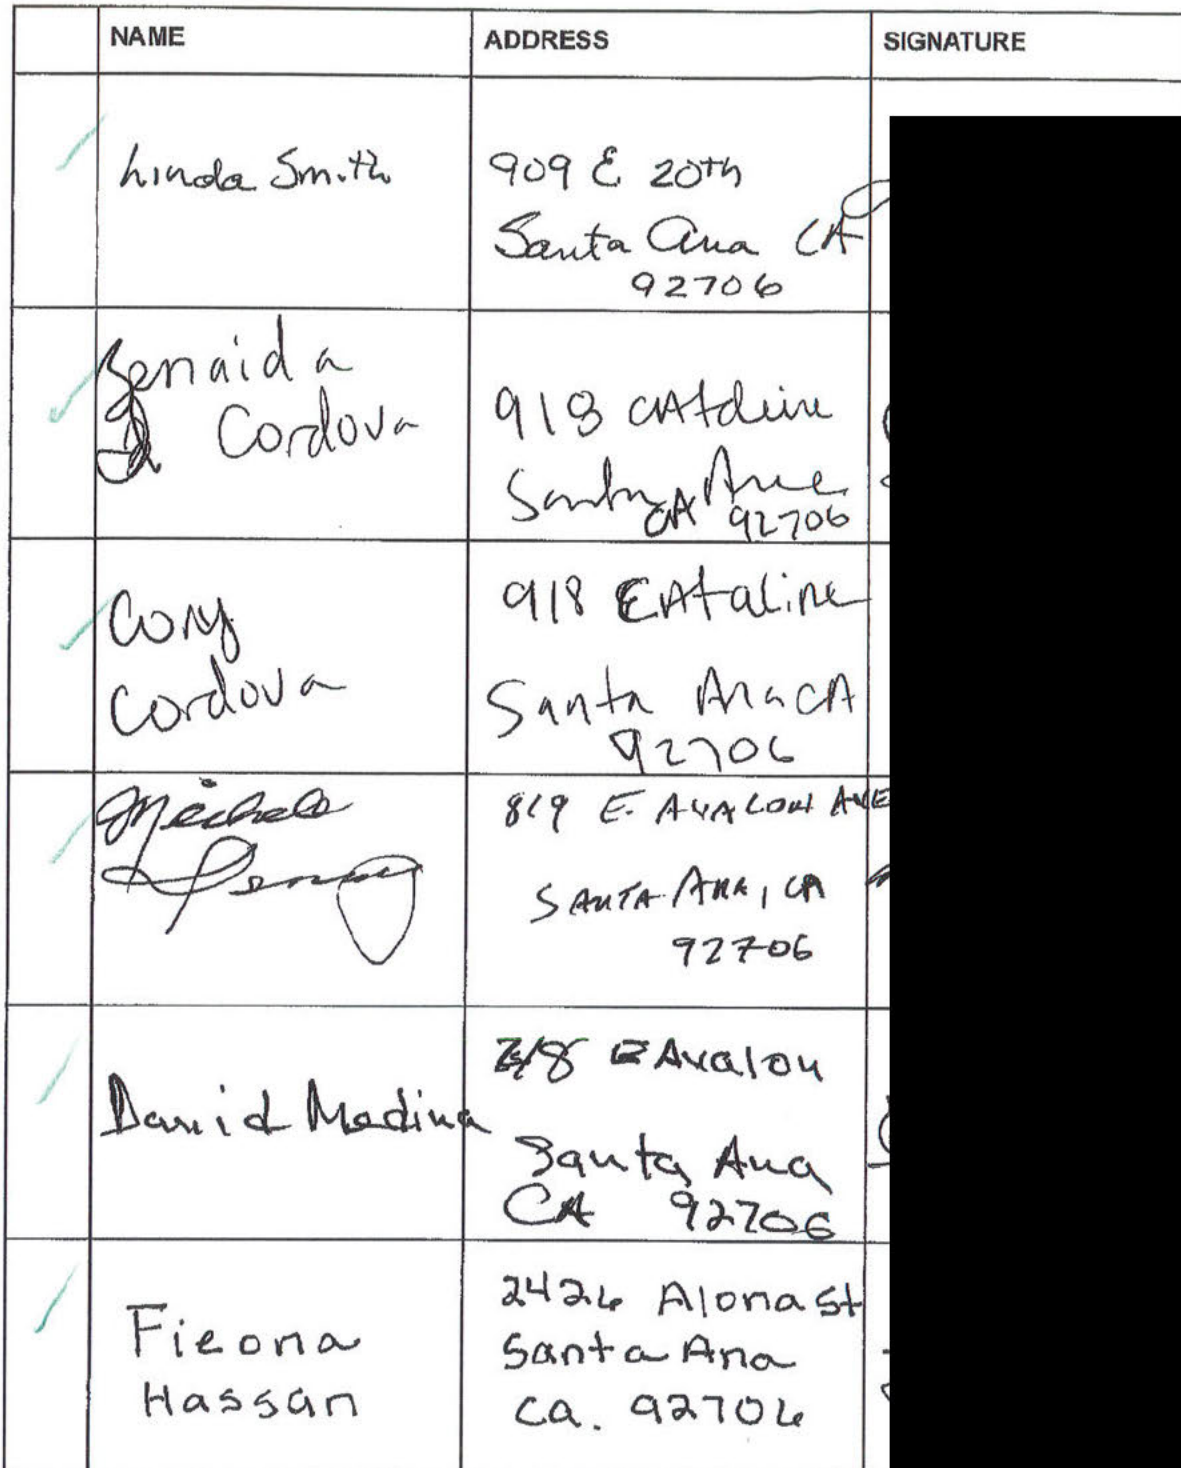 NAME ADDRESS SIGNATURE
Linda Smith
909 E 20th
Santa Ana CA
92706
Zenaida
Cordova
918 CAtaline
Santa Ana
CA 92706
Cory
Cordova
918 CAtaline
Santa Ana CA
92706
Michele
819 E. AVALON AVE
SANTA ANA, CA
92706
David Medina
E Avalon
Santa Ana
CA 92706
Fieona
Hassan
2426 Alona St
Santa Ana
Ca. 92706